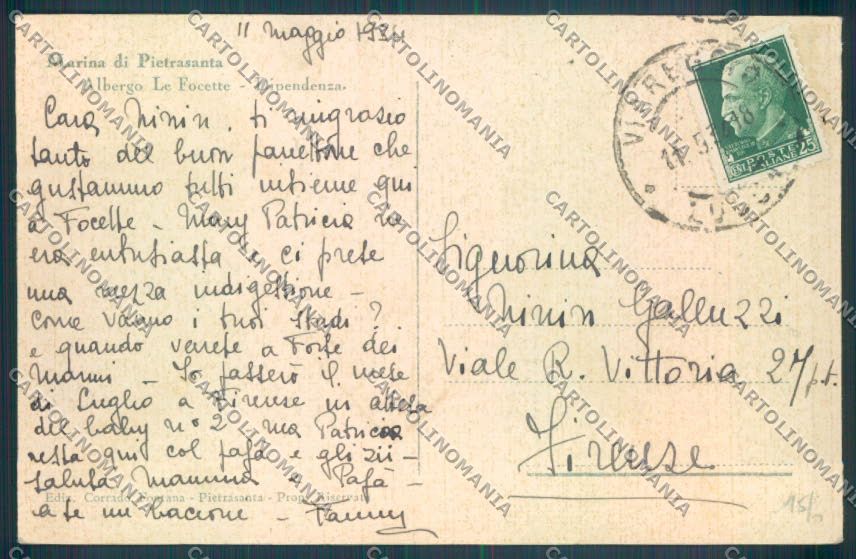 11 maggio 1934
Marina di Pietrasanta
Albergo Le Focette - Dipendenza.
Cara Ninin, ti ringrazio
tanto del buon panettone che
gustammo tutti insieme qui
a Focette - Mary Patricia ne
era entusiasta e ci prese
una mezza indigestione -
Come vanno i tuoi studi?
e quando verrete a Forte dei
Marmi - Io passerò il mese
di Luglio a Firenze in attesa
del baby nº 2 ma Patricia
resta qui col papà e gli zii -
saluta Mamma e Papà -
a te un bacione - Fanny
Ediz. Corrado Fontana - Pietrasanta - Propr. Riservata
VIAREGGIO
18
POSTE ITALIANE
CENT 25
Signorina
Ninin Galluzzi
Viale R. Vittoria 27 p.t.
Firenze
15/
CARTOLINOMANIA